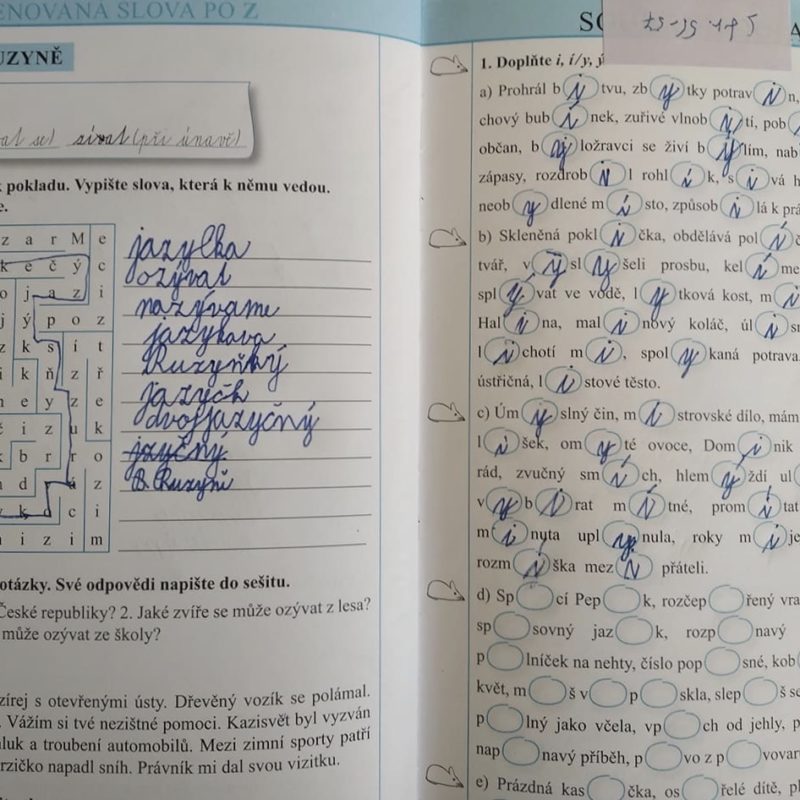 ENOVANÁ SLOVA PO Z
UZYNĚ
at se) zívat (při únavě)
k pokladu. Vypište slova, která k němu vedou.
e.
z a r M e
k e č ý c
o j a z i
j ý p o z
z k s í t
i k ň z ř
n e y z e
č i z u k
k b r r o
n d á z
y k d c i
n i z i m
jazylka
ozýval
nazýváme
jazykova
Ruzyňský
jazych
dvojjazyčný
jzyčný
Ruzyni
otázky. Své odpovědi napište do sešitu.
České republiky? 2. Jaké zvíře se může ozývat z lesa?
může ozývat ze školy?
zírej s otevřenými ústy. Dřevěný vozík se polámal.
. Vážím si tvé nezištné pomoci. Kazisvět byl vyzván
luk a troubení automobilů. Mezi zimní sporty patří
rzičko napadl sníh. Právník mi dal svou vizitku.
SO
1. Doplňte i, í/y, ý
a) Prohrál b i tvu, zb y tky potrav i n,
chový bub í nek, zuřivé vlnob i tí, pob
občan, b ý ložravci se živí b ý lím, nab
zápasy, rozdrob i l rohl í k, s i vá h
neob y dlené m í sto, způsob i lá k prá
b) Skleněná pokl i čka, obdělává pol í č
tvář, v y sl y šeli prosbu, kel í me
spl ý vat ve vodě, l ý tková kost, m
Hal i na, mal i nový koláč, úl i sn
l i chotí m i, spol y kaná potrava
ústřičná, l i stové těsto.
c) Úm y slný čin, m i strovské dílo, mám
l i šek, om y té ovoce, Dom i nik
rád, zvučný sm í ch, hlem ý ždí ul
v y b í rat m í tné, prom í tat
m i nuta upl y nula, roky m í je
rozm í ška mez i přáteli.
d) Sp cí Pep k, rozčep řený vra
sp sovný jaz k, rozp navý
p lníček na nehty, číslo pop sné, kob
květ, m š v p skla, slep š s
p lný jako včela, vp ch od jehly, p
nap navý příběh, p vo z p vovar
e) Prázdná kas čka, os řelé dítě, pl